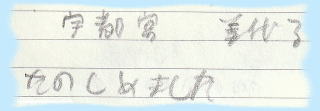 宇都宮　美代子
たのしめました